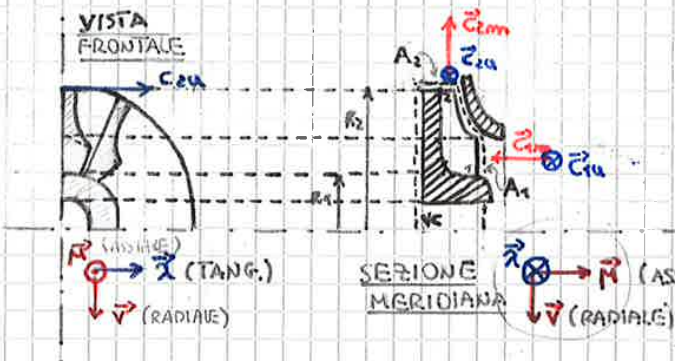 VISTA
FRONTALE
C2u
R2
R1
A2
C2m
C2u
C1m
C1u
A1
VC
M (ASSIALE)
λ (TANG.)
V (RADIALE)
SEZIONE
MERIDIANA
λ
M (AS
V (RADIALE)